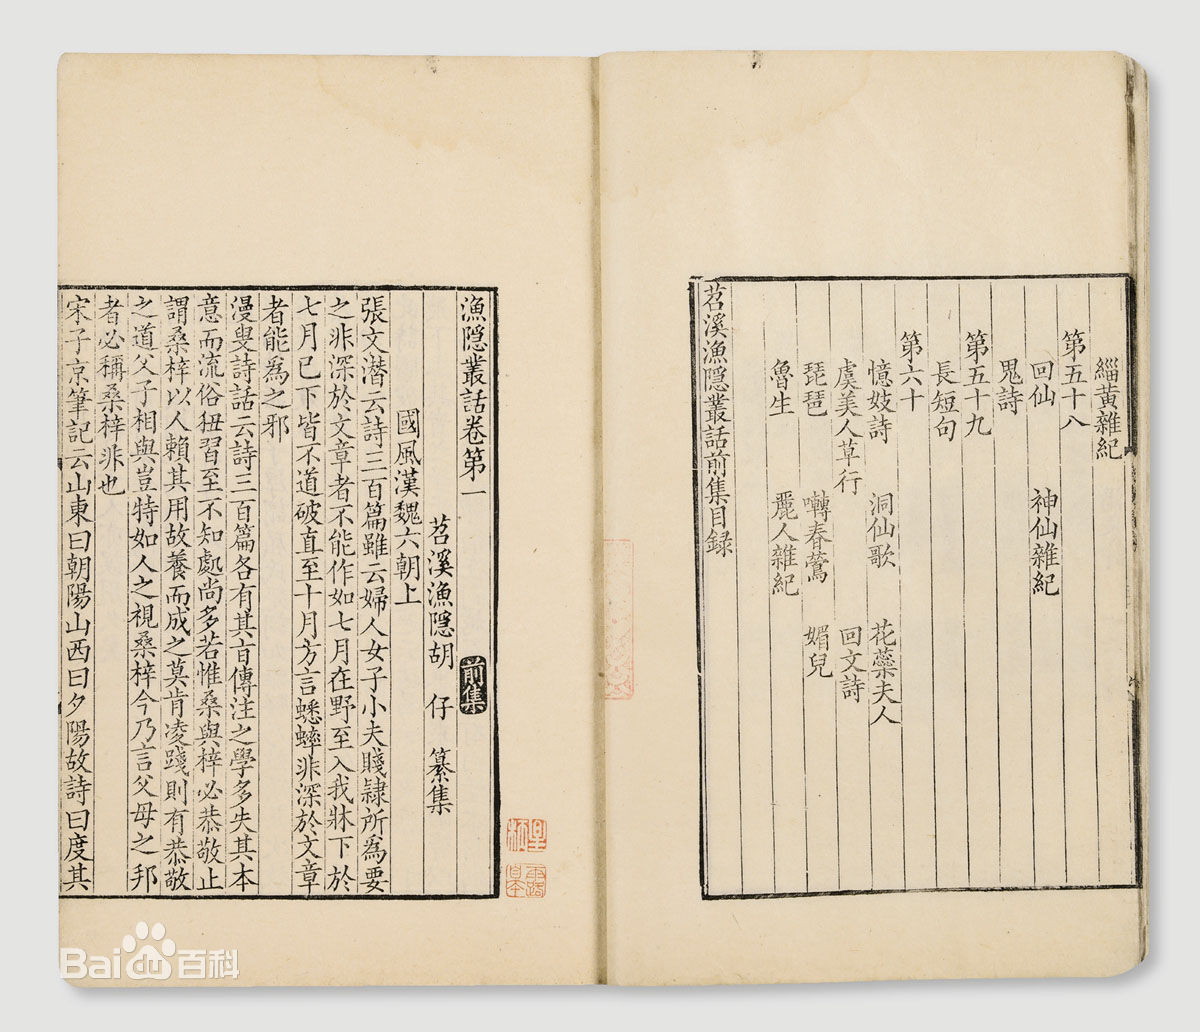 緇黄雜紀
第五十八
回仙 神仙雜紀
鬼詩
第五十九
長短句
第六十
憶妓詩 洞仙歌 花蘂夫人
虞美人草行 回文詩
琵琶 囀春鶯 媚兒
魯生 麗人雜紀
苕溪漁隱叢話前集目録
漁隱叢話卷第一 前集
苕溪漁隱胡 仔 纂集
國風漢魏六朝上
張文潛云詩三百篇雖云婦人女子小夫賤隷所爲要
之非深於文章者不能作如七月在野至入我牀下於
七月已下皆不道破直至十月方言蟋蟀非深於文章
者能爲之邪
漫叟詩話云詩三百篇各有其旨傳注之學多失其本
意而流俗狃習至不知處尚多若惟桑與梓必恭敬止
謂桑梓以人賴其用故養而成之莫肯凌踐則有恭敬
之道父子相與豈特如人之視桑梓今乃言父母之邦
者必稱桑梓非也
宋子京筆記云山東曰朝陽山西曰夕陽故詩曰度其
Baidu百科